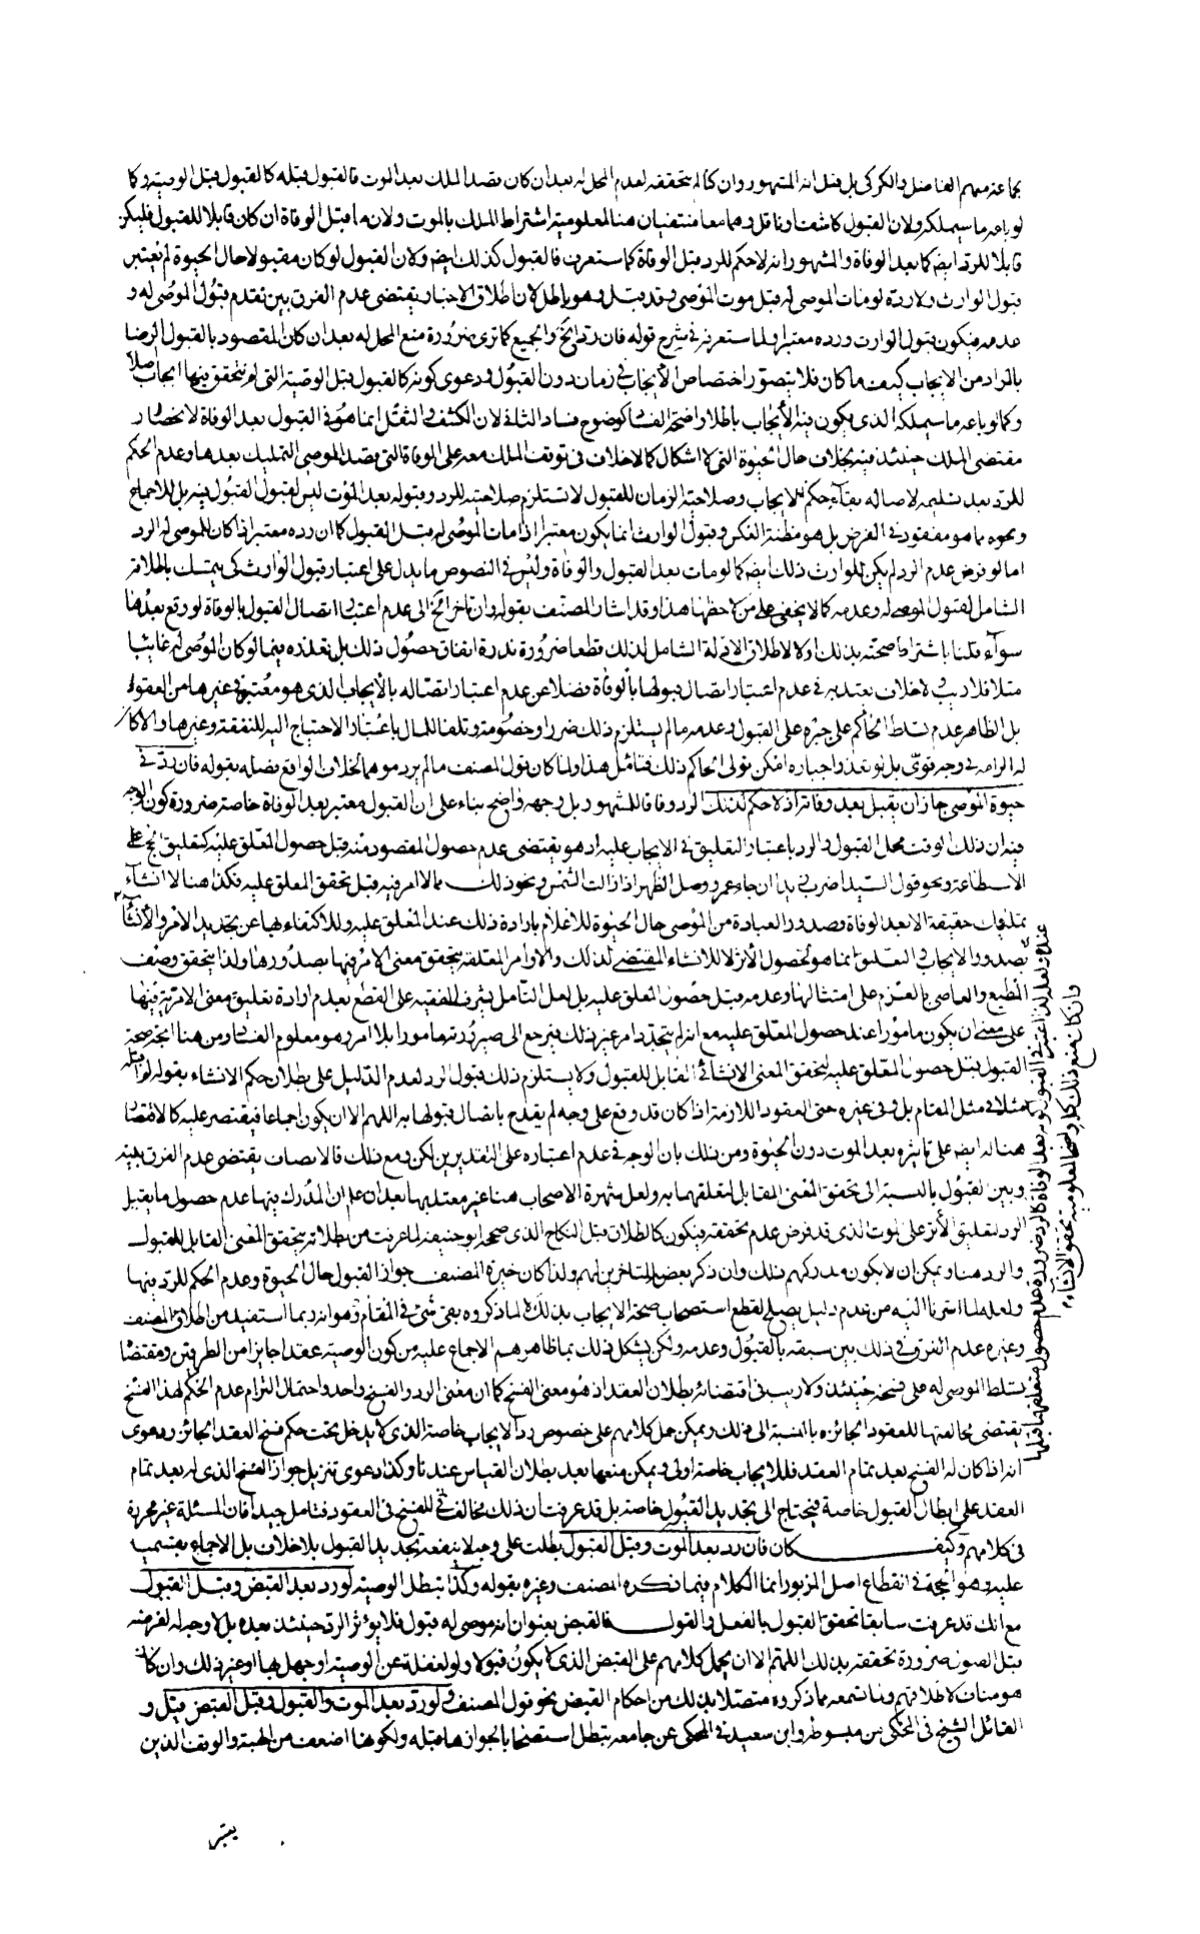 جماعة منهم الفاضل والكركى بل قيل انه المشهور وان كنا لم نتحققه لعدم المحل له بعد ان كان قصد الملك بعد الموت فالقبول قبله كالقبول قبل الوصية وكما
لو باعه ما سيملكه ولان القبول كاشف او ناقل وهما معا منتفيان هنا لمعلومية اشتراط الملك بالموت ولانه ما قبل الوفاة ان كان قابلا للقبول فليكن
قابلا للرد ايضا كما بعد الوفاة والمشهور انه لا حكم للرد قبل الوفاة كما ستعرف فالقبول كذلك ايضا ولان القبول لو كان مقبولا حال الحيوة لم يعتبر
قبول الوارث ولا رده لو مات الموصى له قبل موت الموصى وقد قبل وهو باطل لان اطلاق الاخبار يقتضى عدم الفرق بين تقدم قبول الموصى له و
عدمه فيكون قبول الوارث ورده معتبرا ولما ستعرفه في شرح قوله فان رد الخ والجميع كما ترى ضرورة منع المحل له بعد ان كان المقصود بالقبول الرضا
بالمراد من الايجاب كيف ما كان فلا يتصور اختصاص الايجاب في زمان دون القبول ودعوى كونه كالقبول قبل الوصية التي لم يتحقق فيها ايجاب اصلا
وكما لو باعه ما سيملكه الذى يكون فيه الايجاب باطلا واضحة الفساد كوضوح فساد الثالث لان الكشف والنقل انما هو في القبول بعد الوفاة لانحصار
مقتضى الملك حينئذ فيه بخلاف حال الحيوة التي لا اشكال كما لا خلاف في توقف الملك معه على الوفاة التي قصد الموصى التمليك بعدها وعدم الحكم
للرد بعد تسليمه لاصالة بقاء حكم الايجاب وصلاحية الزمان للقبول لا تستلزم صلاحيته للرد وقبوله بعد الموت ليس لقبول القبول فيه بل للاجماع
ونحوه مما هو مفقود في الفرض بل هو مظنة العكس وقبول الوارث انما يكون معتبرا اذا مات الموصى له قبل القبول كما ان رده معتبر اذا كان للموصى له الرد
اما لو فرض عدم الرد له لم يكن للوارث ذلك ايضا كما لو مات بعد القبول والوفاة وليس في النصوص ما يدل على اعتبار قبول الوارث كى يتمسك باطلاقه
الشامل لقبول الموصى له وعدمه كما لا يخفى على من لاحظها هذا وقد اشار المصنف بقوله وان تاخر الخ الى عدم اعتبار اتصال القبول بالوفاة لو وقع بعدها
سواء قلنا باشتراط صحته بذلك او لا لاطلاق الادلة الشامل لذلك قطعا ضرورة ندرة اتفاق حصول ذلك بل تعذره فيما لو كان الموصى له غائبا
مثلا فلا ريب ولا خلاف يعتد به في عدم اعتبار اتصال قبولها بالوفاة فضلا عن عدم اعتبار اتصاله بالايجاب الذى هو معتبر في غيرها من العقود
بل الظاهر عدم تسلط الحاكم على جبره على القبول وعدمه ما لم يستلزم ذلك ضررا وخصومة وتلفا للمال باعتبار الاحتياج اليه للنفقة وغيرها والا كان
له الزامه في وجه قوى بل لو تعذر اجباره امكن تولى الحاكم ذلك فتامل هذا ولما كان قول المصنف ما لم يرد موهما لخلاف الواقع فصله بقوله فان رد في
حيوة الموصى جاز ان يقبل بعد وفاته اذ لا حكم لذلك الرد وفاقا للمشهور بل وجهه واضح بناء على ان القبول معتبر بعد الوفاة خاصة ضرورة كون الوجه
فيه ان ذلك الوقت محل القبول والرد باعتبار التعليق في الايجاب عليه اذ هو يقتضى عدم حصول المقصود منه قبل حصول المعلق عليه كتعليق الحج على
الاستطاعة ونحو قول السيد اضرب زيدا ان جاء عمرو وصل الظهر اذا زالت الشمس ونحو ذلك مما لا امر فيه قبل تحقق المعلق عليه فكذا هنا لا انشاء
تمليك حقيقة الا بعد الوفاة وصدور العبارة من الموصى حال الحيوة للاعلام بارادة ذلك عند المعلق عليه وللاكتفاء بها عن تجديد الامر والانشاء
بصدور الايجاب في التعليق انما هو لحصول الاثر لا للانشاء المقتضى لذلك والاوامر المعلقة يتحقق معنى الامر فيها بصدورها ولذا يتحقق وصف
المطيع والعاصي بالعزم على امتثالها وعدمه قبل حصول المعلق عليه بل لعل التامل يشرف الفقيه على القطع بعدم ارادة تعليق معنى الامرية فيها
على معنى ان يكون مامورا عند حصول المعلق عليه مع انه لم يتجدد امر غير ذلك فيرجع الى صيرورته مامورا بلا امر وهو معلوم الفساد ومن هنا اتجه صحة
القبول قبل حصول المعلق عليه لتحقق المعنى الانشائى القابل للقبول ولا يستلزم ذلك قبول الرد لعدم الدليل على بطلان حكم الانشاء بقوله لا اقبله
مثلا في مثل المقام بل وفى غيره حتى العقود اللازمة اذا كان قد وقع على وجه لم يقدح باتصال قبولها به اللهم الا ان يكون اجماعا فيقتصر عليه كالاقتصار
هنا له ايضا على تاثيره بعد الموت دون الحيوة ومن ذلك بان الوجه في عدم اعتباره على التقديرين لكن ومع ذلك فالانصاف يقتضى عدم الفرق بينه
وبين القبول بالنسبة الى تحقق المعنى المقابل لمتعلقهما به ولعل شهرة الاصحاب هنا غير معتد بها بعد ان علم ان المدرك فيها عدم حصول ما يقبل
الرد لتعليق الاثر على الموت الذى قد فرض عدم تحققه فيكون كالطلاق قبل النكاح الذى صححه ابو حنيفة لما عرفت من بطلانه بتحقق المعنى القابل للقبول
والرد هنا ويمكن ان لا يكون مدركهم ذلك وان ذكر بعض المتاخرين لهم ولذا كان خيرة المصنف جواز القبول حال الحيوة وعدم الحكم للرد فيها
ولعله لما اشرنا اليه من عدم دليل يصلح لقطع استصحاب صحة الايجاب بذلك لما ذكروه بقى شئ في المقام وهو انه ربما استفيد من اطلاق المصنف
وغيره عدم الفرق في ذلك بين سبقه بالقبول وعدمه ولكن يشكل ذلك بما ظاهرهم الاجماع عليه من كون الوصية عقدا جايزا من الطرفين ومقتضاه
تسلط الموصى له على فسخه حينئذ ولا ريب في اقتضائه بطلان العقد اذ هو معنى الفسخ كما ان معنى الرد والفسخ واحد واحتمال التزام عدم الحكم لهذا الفسخ
يقتضى مخالفتها للعقود الجائزة بالنسبة الى ذلك ويمكن حمل كلامهم على خصوص رد الايجاب خاصة الذى لا يدخل تحت حكم فسخ العقد الجائز ودعوى
انه اذا كان له الفسخ بعد تمام العقد فللايجاب خاصة اولى ويمكن منعها بعد بطلان القياس عندنا وكذا دعوى تنزيل جواز الفسخ الذى له بعد تمام
العقد على ابطال القبول خاصة فيحتاج الى تجديد القبول خاصة بل قد عرفت ان ذلك مخالف للفسخ في العقود فتامل جيدا فان المسئلة غير محررة
في كلامهم وكيف كان فان رد بعد الموت وقبل القبول بطلت على وجه لا ينفعه تجديد القبول بلا خلاف بل الاجماع بقسميه
عليه وهو الحجة في انقطاع اصل المزبور انما الكلام فيما ذكره المصنف وغيره بقوله وكذا تبطل الوصية لو رد بعد القبض وقبل القبول
مع انك قد عرفت سابقا تحقق القبول بالفعل والقول فالقبض بعنوان انه موصى له قبول فلا يؤثر الرد حينئذ بعده بل لا وجه لفرضه
قبل القبول ضرورة تحققه بذلك اللهم الا ان يحمل كلامهم على القبض الذى لا يكون قبولا ولو لغفلة عن الوصية او جهل بها او غير ذلك وان كان
هو مناف لاطلاقهم وما تسمعه مما ذكروه متصلا بذلك من احكام القبض نحو قول المصنف ولو رد بعد الموت والقبول وقبل القبض قيل و
القائل الشيخ في المحكى من مبسوطه وابن سعيد في المحكى عن جامعه تبطل استصحابا لجوازها قبله ولكونها اضعف من الهبة والوقف الذين
يعتبر